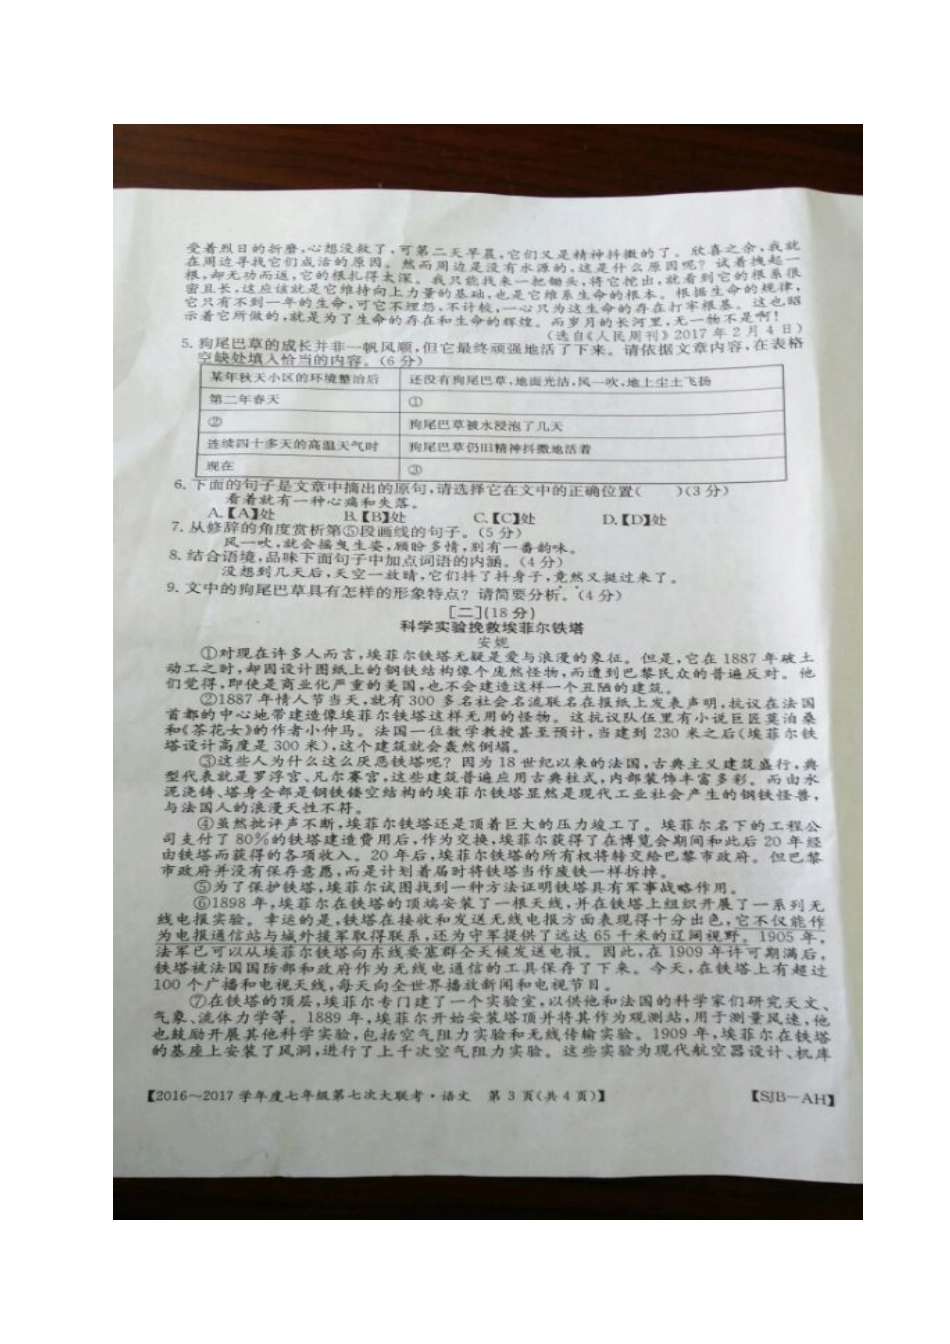 受着烈日的折磨,心想没救了,可第二天早晨,它们又是精神抖擞的了。欣喜之余,我就
在周边寻找它们成活的原因。然而周边是没有水源的,这是什么原因呢?试着拽起一
根,却无功而返,它的根扎得太深。我只能找来一把锄头,将它挖出,就看到它的根系很
密且长,这应该就是它维持向上力量的基础,也是它维系生命的根本。根据生命的规律,
它只有不到一年的生命,可它不埋怨,不计较,一心只为这生命的存在打牢根基。这也昭
示着它所做的,就是为了生命的存在和生命的辉煌。而岁月的长河里,无一物不是啊!
(选自《人民周刊》2017年2月4日)
5. 狗尾巴草的成长并非一帆风顺,但它最终顽强地活了下来。请依据文章内容,在表格
空缺处填入恰当的内容。(6分)
某年秋天小区的环境整治后 还没有狗尾巴草,地面光洁,风一吹,地上尘土飞扬
第二年春天 ①
② 狗尾巴草被水浸泡了几天
连续四十多天的高温天气时 狗尾巴草仍旧精神抖擞地活着
现在 ③
6. 下面的句子是文章中摘出的原句,请选择它在文中的正确位置( )(3分)
看着就有一种心痛和失落。
A.【A】处 B.【B】处 C.【C】处 D.【D】处
7. 从修辞的角度赏析第⑤段画线的句子。(5分)
风一吹,就会摇曳生姿,顾盼多情,别有一番韵味。
8. 结合语境,品味下面句子中加点词语的内涵。(4分)
没想到几天后,天空一放晴,它们抖了抖身子,竟然又挺过来了。
9. 文中的狗尾巴草具有怎样的形象特点?请简要分析。(4分)
[二](18分)
科学实验挽救埃菲尔铁塔
安妮
①对现在许多人而言,埃菲尔铁塔无疑是爱与浪漫的象征。但是,它在1887年破土
动工之时,却因设计图纸上的钢铁结构像个庞然怪物,而遭到巴黎民众的普遍反对。他
们觉得,即使是商业化严重的美国,也不会建造这样一个丑陋的建筑。
②1887年情人节当天,就有300多名社会名流联名在报纸上发表声明,抗议在法国
首都的中心地带建造像埃菲尔铁塔这样无用的怪物。这抗议队伍里有小说巨匠莫泊桑
和《茶花女》的作者小仲马。法国一位数学教授甚至预计,当建到230米之后(埃菲尔铁
塔设计高度是300米),这个建筑就会轰然倒塌。
③这些人为什么这么厌恶铁塔呢?因为18世纪以来的法国,古典主义建筑盛行,典
型代表就是罗浮宫、凡尔赛宫,这些建筑普遍应用古典柱式,内部装饰丰富多彩。而由水
泥浇铸、塔身全部是钢铁镂空结构的埃菲尔铁塔显然是现代工业社会产生的钢铁怪兽,
与法国人的浪漫天性不符。
④虽然批评声不断,埃菲尔铁塔还是顶着巨大的压力竣工了。埃菲尔名下的工程公
司支付了80%的铁塔建造费用后,作为交换,埃菲尔获得了在博览会期间和此后20年经
由铁塔而获得的各项收入。20年后,埃菲尔铁塔的所有权将转交给巴黎市政府。但巴黎
市政府并没有保存意愿,而是计划着届时将铁塔当作废铁一样拆掉。
⑤为了保护铁塔,埃菲尔试图找到一种方法证明铁塔具有军事战略作用。
⑥1898年,埃菲尔在铁塔的顶端安装了一根天线,并在铁塔上组织开展了一系列无
线电报实验。幸运的是,铁塔在接收和发送无线电报方面表现得十分出色,它不仅能作
为电报通信站与城外援军取得联系,还为守军提供了远达65千米的辽阔视野。1905年,
法军已可以从埃菲尔铁塔向东线要塞群全天候发送电报。因此,在1909年许可期满后,
铁塔被法国国防部和政府作为无线电通信的工具保存了下来。今天,在铁塔上有超过
100个广播和电视天线,每天向全世界播放新闻和电视节目。
⑦在铁塔的顶层,埃菲尔专门建了一个实验室,以供他和法国的科学家们研究天文、
气象、流体力学等。1889年,埃菲尔开始安装塔顶并将其作为观测站,用于测量风速,他
也鼓励开展其他科学实验,包括空气阻力实验和无线传输实验。1909年,埃菲尔在铁塔
的基座上安装了风洞,进行了上千次空气阻力实验。这些实验为现代航空器设计、机库
【2016~2017学年度七年级第七次大联考·语文 第3页(共4页)】 【SJB-AH】